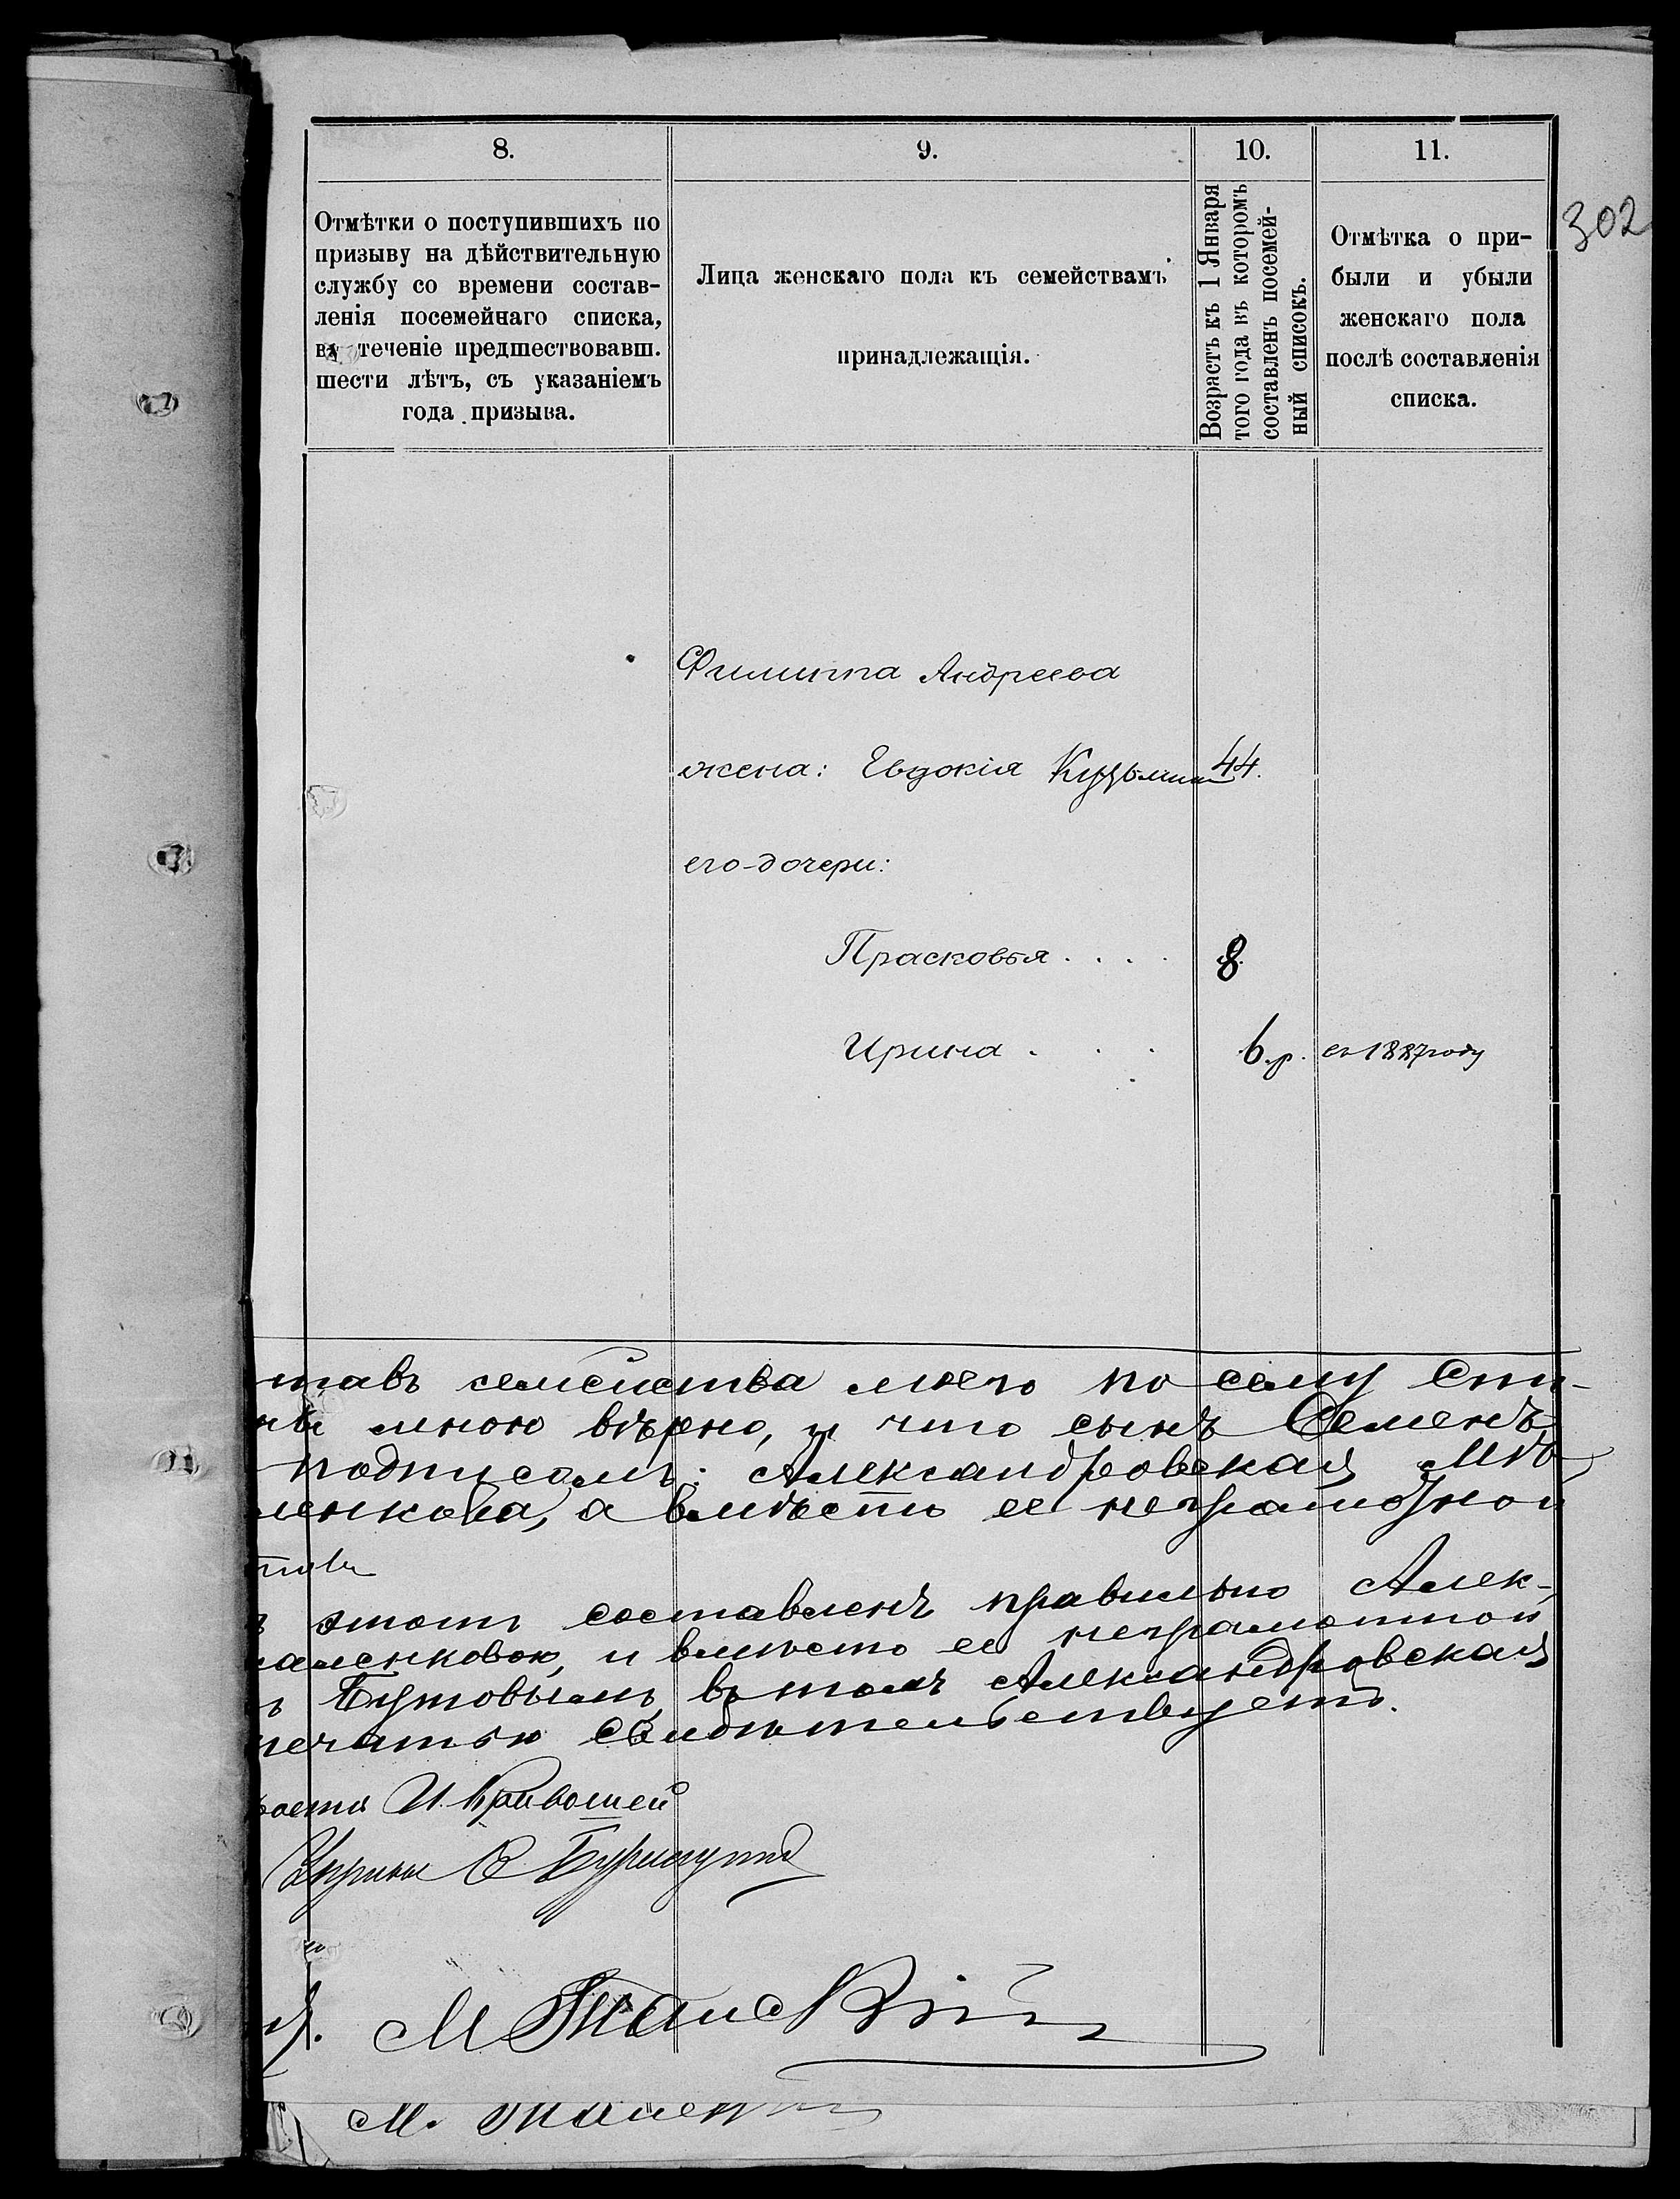 302
8.
Отмѣтки о поступившихъ по
призыву на дѣйствительную
службу со времени состав-
ленія посемейнаго списка,
въ теченіе предшествовавш.
шести лѣтъ, съ указаніемъ
года призыва.
9.
Лица женскаго пола къ семействамъ
принадлежащія.
10.
Возрастъ къ 1 Января
того года въ которомъ
составленъ посемей-
ный списокъ.
11.
Отмѣтка о при-
были и убыли
женскаго пола
послѣ составленія
списка.
Филиппа Андреева
жена: Евдокія Кузьмина 44.
его дочери:
Прасковья . . . . 8
Ирина . . . б.р. въ 1887 году
ставъ семейства моего по сему Спи-
мною вѣрно, и что сынъ Семенъ
подписомъ: Александровская Мѣ
ленкова, а вмѣсто ея неграмотной
этотъ составленъ правильно Алек-
саленковою, и вмѣсто ея неграмотной
Бутовымъ, въ томъ Александровская
печатью свидѣтельствуетъ.
роста И. Кривошей
М.
М.